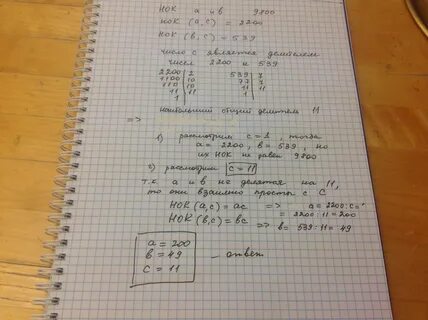 НОК a и в 9800
НОК (a, c) = 2200
НОК (в, c) = 539
число с является делителем
чисел 2200 и 539
2200 | 2 539 | 7
1100 | 10 77 | 7
110 | 10 11 | 11
11 | 11 1
1
наибольший общий делитель 11
=>
1) рассмотрим c = 1, тогда
a = 2200, в = 539, но
их НОК не равен 9800
2) рассмотрим c = 11
т.к a и в не делятся на 11,
то они взаимно просты с c
НОК (a, c) = ac => a = 2200 : c =
= 2200 : 11 = 200
НОК (в, c) = вc => в = 539 : 11 = 49
a = 200
в = 49 – ответ
c = 11